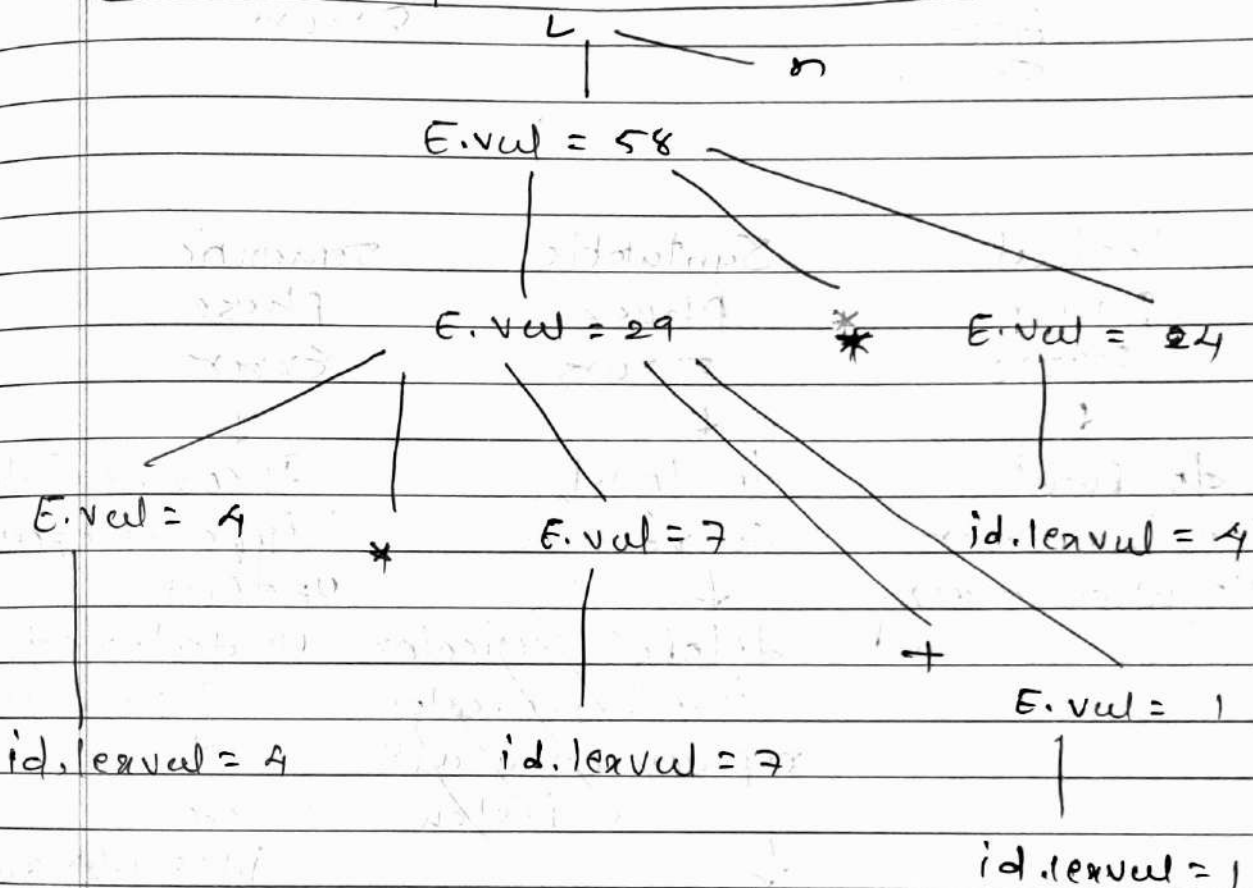 L
n
E.val = 58
E.val = 29 * E.val = 24
E.val = 4 * E.val = 7 id.lexval = 4
+
E.val = 1
id.lexval = 4 id.lexval = 7
id.lexval = 1